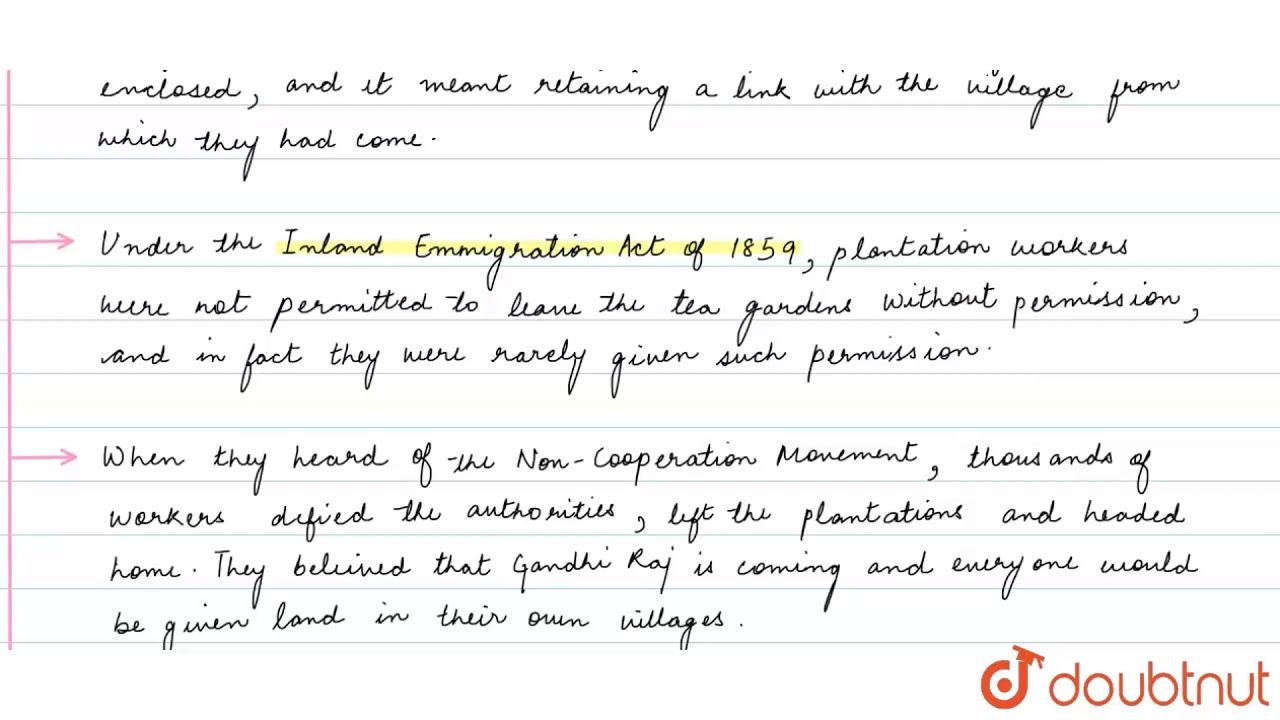 enclosed, and it meant retaining a link with the village from
which they had come.
Under the Inland Emmigration Act of 1859, plantation workers
were not permitted to leave the tea gardens without permission,
and in fact they were rarely given such permission.
When they heard of the Non-Cooperation Movement, thousands of
workers defied the authorities, left the plantations and headed
home. They beleived that Gandhi Raj is coming and everyone would
be given land in their own villages.
doubtnut